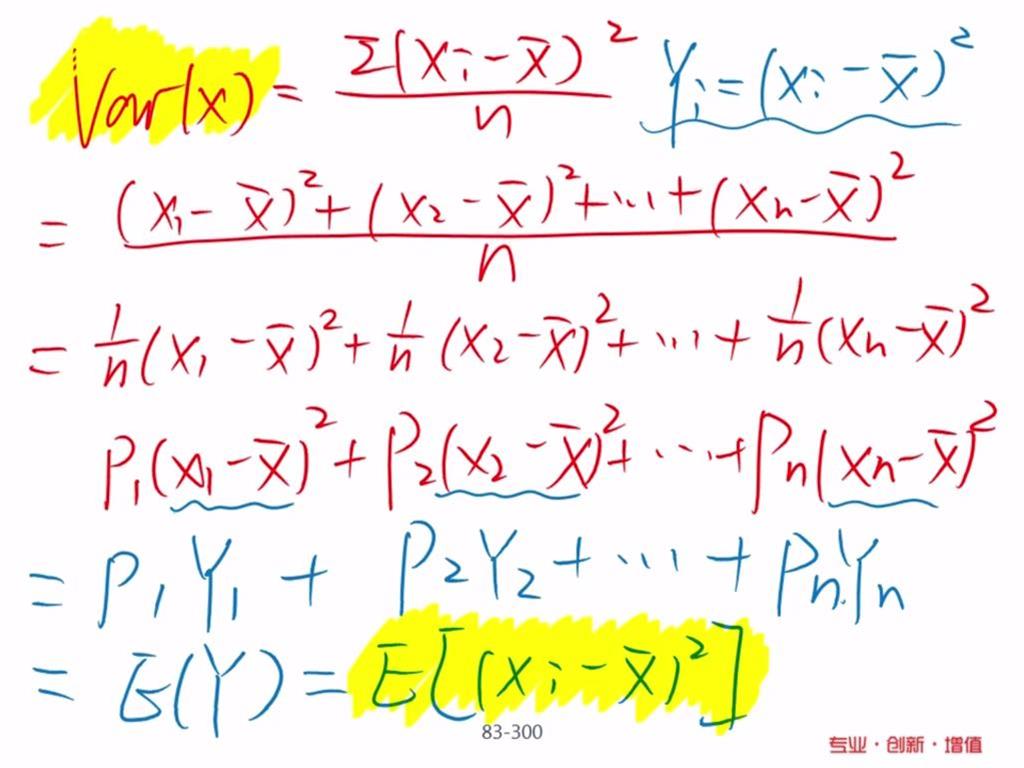 Var(x) = Σ(xᵢ - x̄)² / n   Yᵢ = (xᵢ - x̄)²
= (x₁ - x̄)² + (x₂ - x̄)² + ... + (xₙ - x̄)² / n
= 1/n (x₁ - x̄)² + 1/n (x₂ - x̄)² + ... + 1/n (xₙ - x̄)²
P₁(x₁ - x̄)² + P₂(x₂ - x̄)² + ... + Pₙ(xₙ - x̄)²
= P₁Y₁ + P₂Y₂ + ... + PₙYₙ
= E(Y) = E[(xᵢ - x̄)²]
83-300
专业·创新·增值